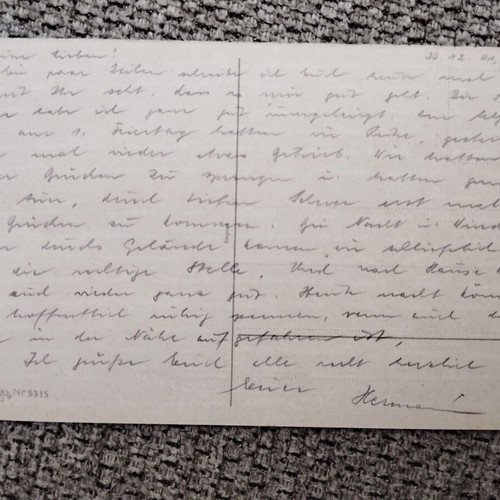 ine Lieben! 27.12.41.
paar Zeilen schreibe ich Euch heute mal
mit Ihr seht, dass es mir gut geht. Die
habe ich ganz gut rumgekriegt. Am
am 1. Feiertag hatten wir Ruhe, gestern
mal wieder etwas Betrieb. Wir hatten
Brücken zu sprengen u. hatten
tun, durch tiefen Schnee erst mal
Brücken zu kommen. Bei Nacht u. Wind
durchs Gelände kamen wir schließlich
die richtige Stelle. Und nach Hause
auch wieder ganz gut. Heute nacht
hoffentlich ruhig pennen, wenn auch
in der Nähe aufgefahren ist,
Ich grüße Euch alle recht herzlich
Euer Hermann
Nr 5315